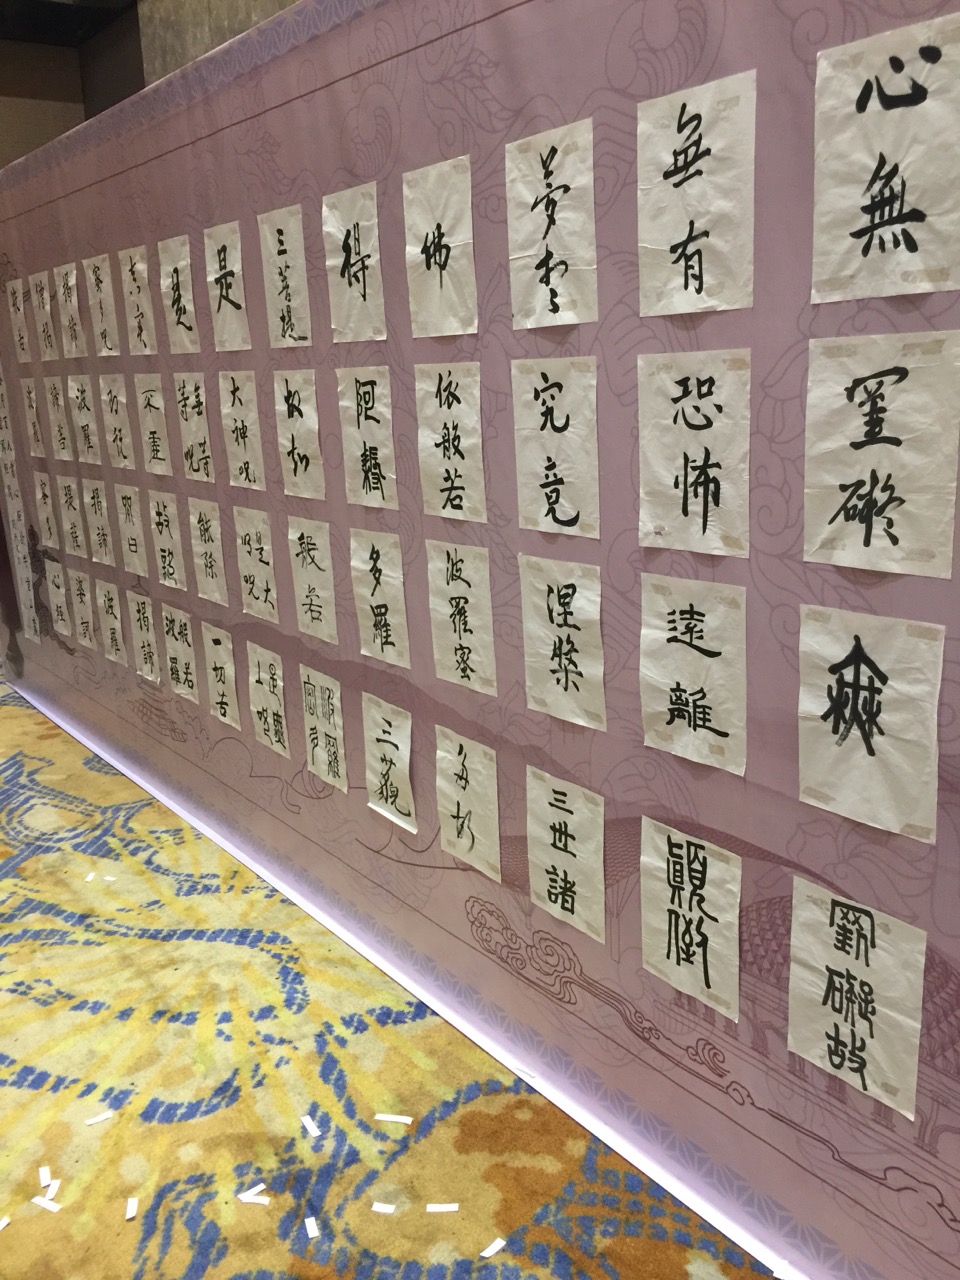 心無
罣礙
無
罣礙故
無有
恐怖
遠離
顛倒
夢想
究竟
涅槃
三世諸
佛
依般若
波羅蜜
多故
得
阿耨
多羅
三藐
三菩提
故知
般若
波羅
密多
是
大神呪
是大
明呪
是無
上呪
無等
等呪
能除
一切苦
真實
不虛
故說
般若
波羅
蜜多呪
即說
呪曰
揭諦
揭諦
波羅
揭諦
波羅
僧揭
諦菩
提薩
婆訶
般若
波羅
蜜多
心經